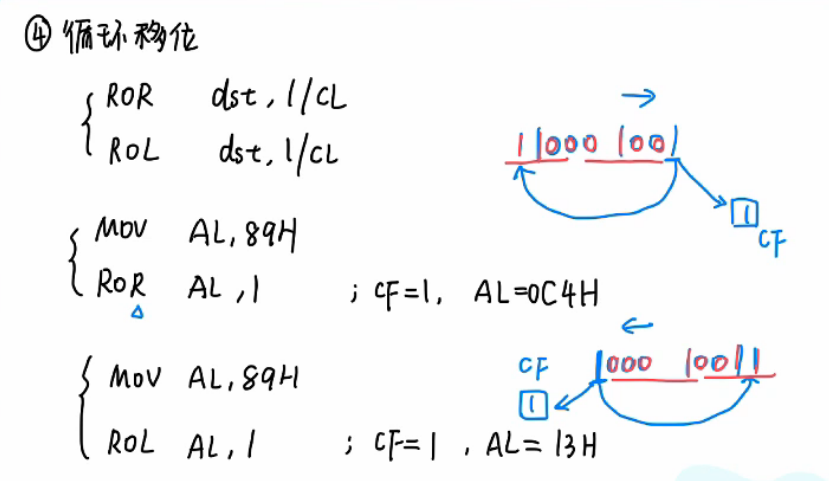 ④ 循环移位
ROR dst, 1/CL
ROL dst, 1/CL
→
11000 1001
1
CF
MOV AL, 89H
ROR AL, 1 ; CF=1, AL=0C4H
△
←
CF
1
1000 10011
MOV AL, 89H
ROL AL, 1 ; CF=1, AL=13H